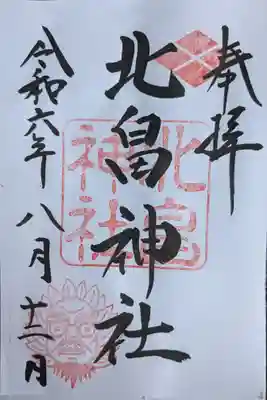 奉拝
北畠神社
北畠
神社
令和六年八月十二日